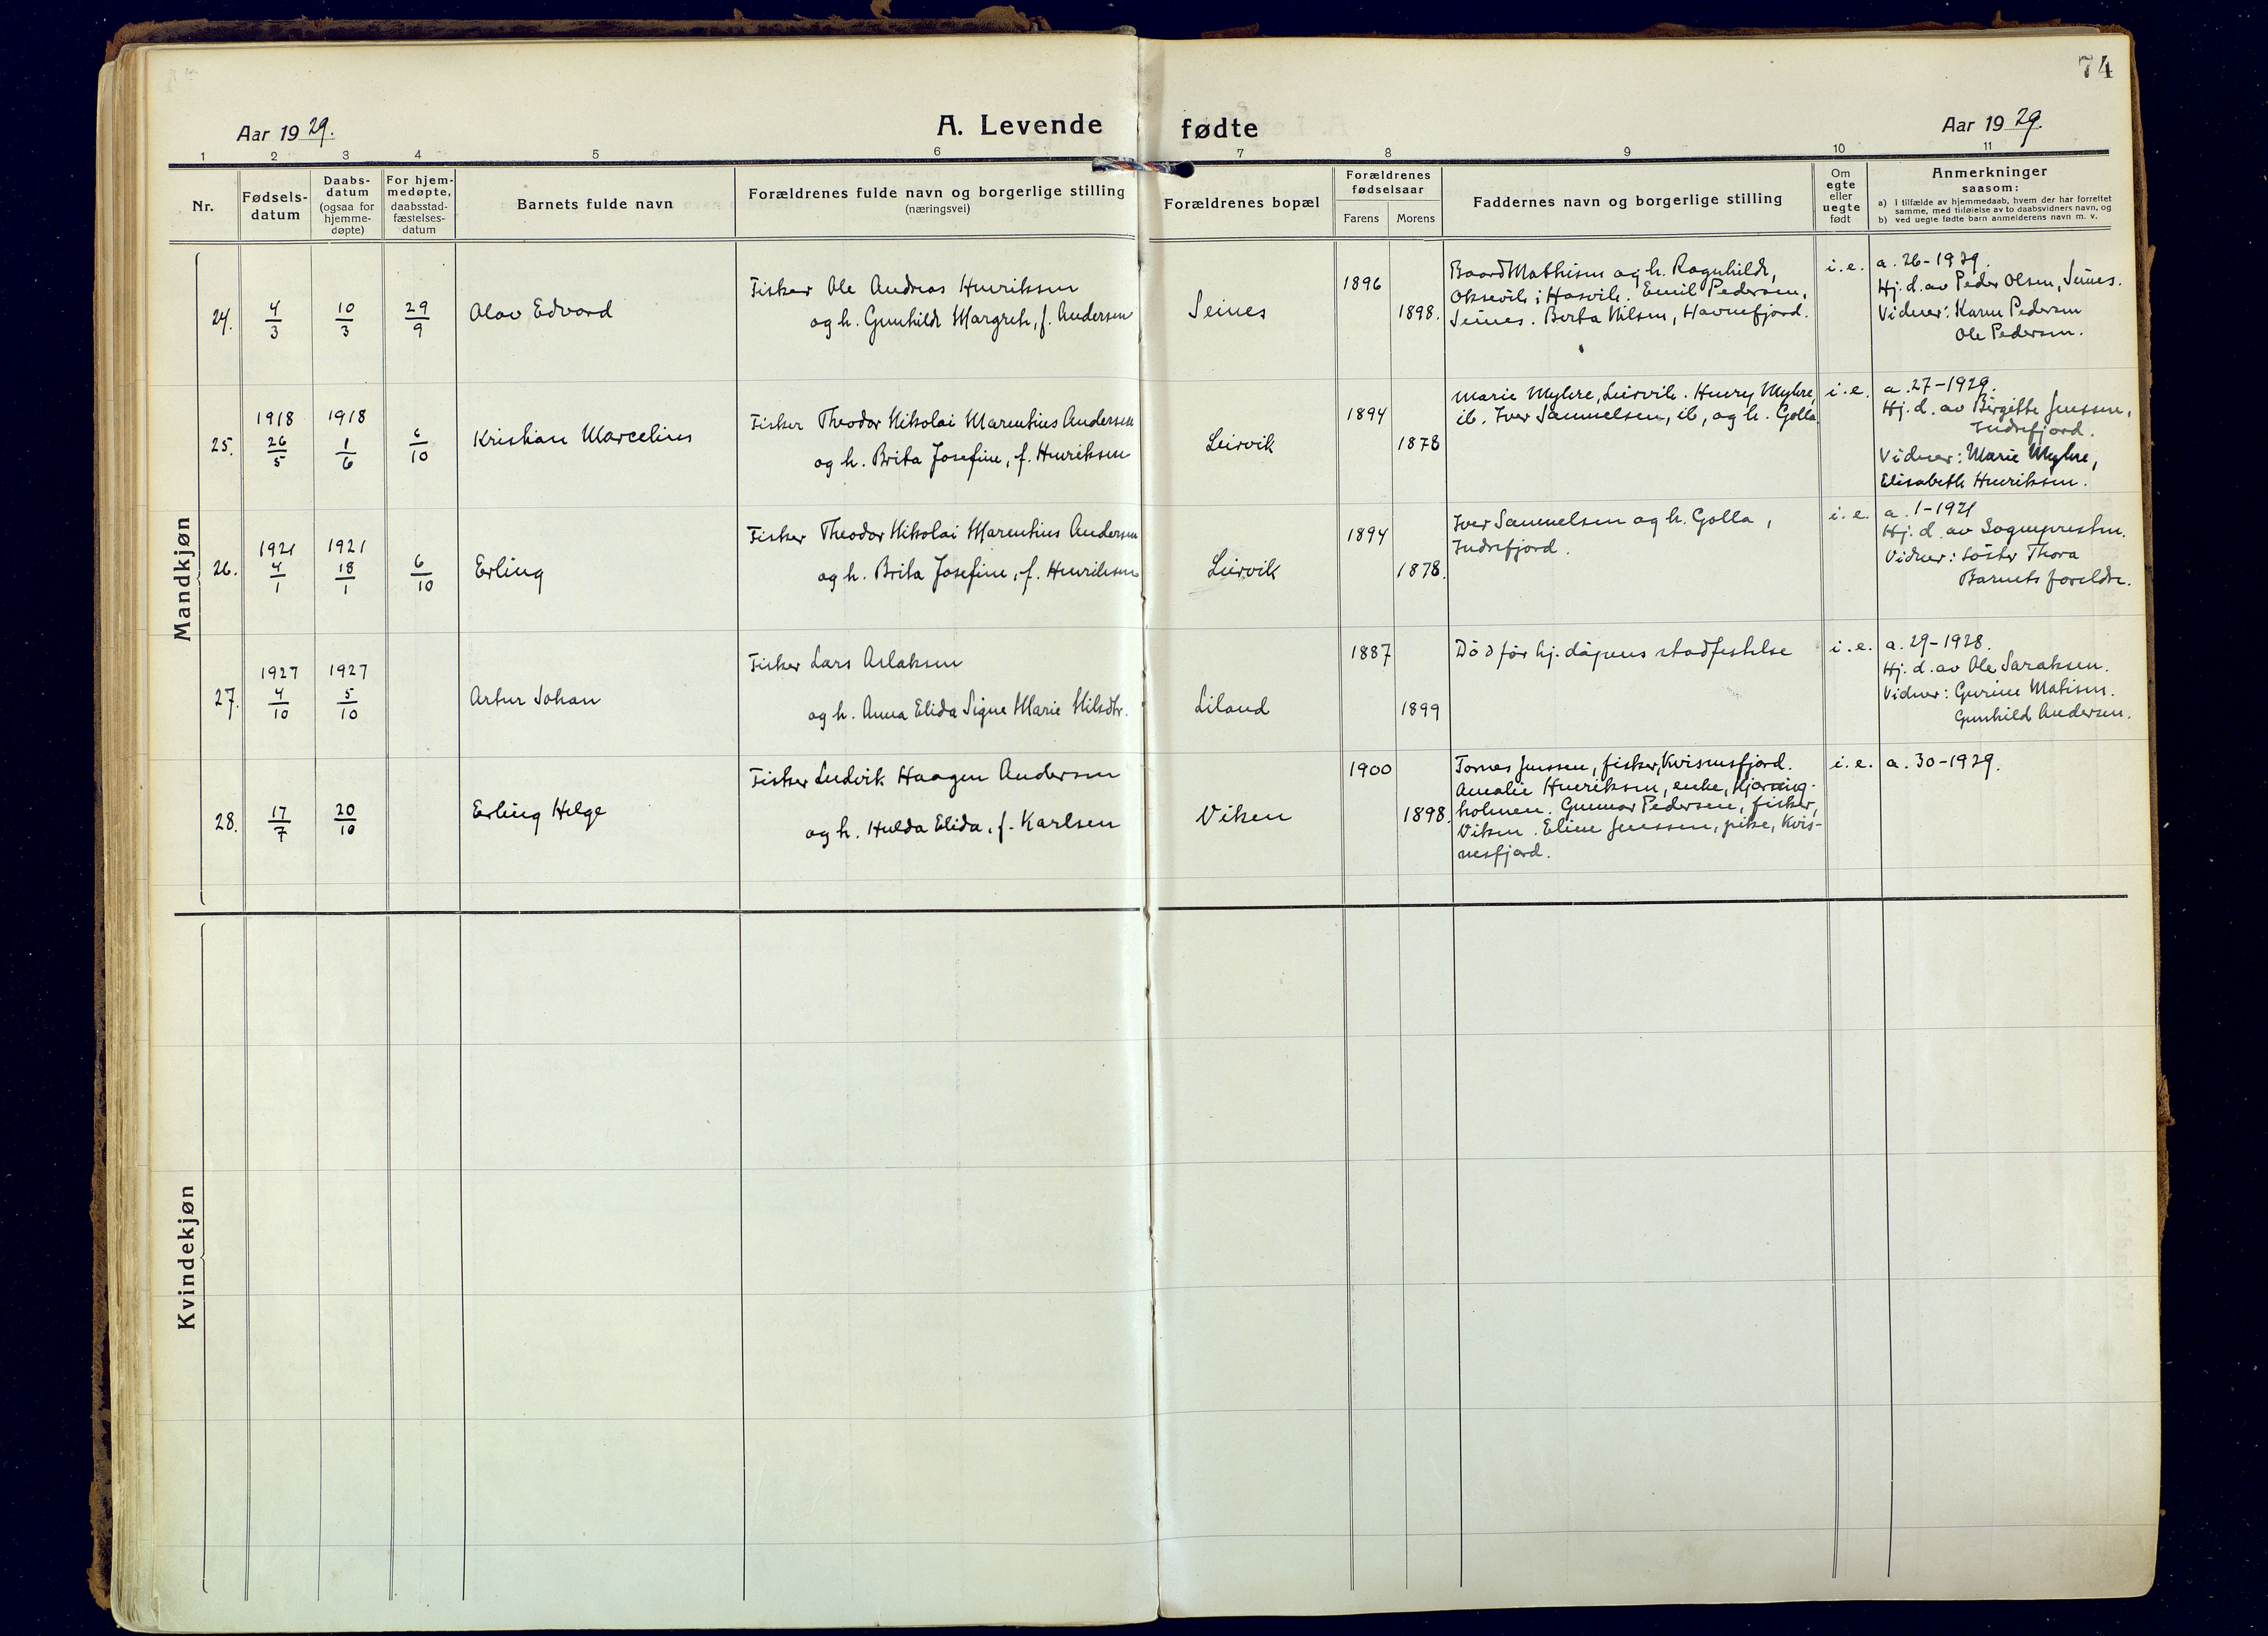 74
Aar 1929.
A. Levende fødte
Aar 1929.
1 2 3 4 5 6 7 8 9 10 11
Nr.
Fødsels-
datum
Daabs-
datum
(ogsaa for
hjemme-
døpte)
For hjem-
medøpte,
daabsstad-
fæstelses-
datum
Barnets fulde navn
Forældrenes fulde navn og borgerlige stilling
(næringsvei)
Forældrenes bopæl
Forældrenes
fødselsaar
Farens Morens
Faddernes navn og borgerlige stilling
Om
egte
eller
uegte
født
Anmerkninger
saasom:
a) i tilfælde av hjemmedaab, hvem der har forrettet
samme, med tilføielse av to daabsvidners navn, og
b) ved uegte fødte barn anmelderens navn m. v.
Mandkjøn
24.
4/3
10/3
29/9
Olav Edvard
Fisker Ole Andreas Henriksen
og h. Gunhild Margreth, f. Andersen
Seines
1896
1898.
Baard Mathisen og h. Ragnhild,
Oksevik i Hasvik. Emil Pedersen,
Seines. Berta Nilsen, Havnefjord.
i. e.
a. 26-1929.
Hj. d. av Peder Olsen, Seines.
Vidner: Karen Pedersen
Ole Pedersen.
25.
1918
26/5
1918
1/6
6/10
Kristian Marcelius
Fisker Theodor Nikolai Marentius Andersen
og h. Brita Josefine, f. Henriksen
Leirvik
1894
1878
Marie Myhre, Leirvik. Henry Myhre,
ib. Iver Samuelsen, ib, og h. Golla.
i. e.
a. 27-1929.
Hj. d. av Birgitte Jenssen,
Indrefjord.
Vidner: Marie Myhre,
Elisabeth Henriksen.
26.
1921
4/1
1921
18/1
6/10
Erling
Fisker Theodor Nikolai Marentius Andersen
og h. Brita Josefine, f. Henriksen
Leirvik
1894
1878.
Iver Samuelsen og h. Golla,
Indrefjord.
i. e.
a. 1-1921
Hj. d. av Sognepresten.
Vidner: Söster Thora
Barnets foreldre.
27.
1927
4/10
1927
5/10
Artur Johan
Fisker Lars Aslaksen
og h. Anna Elida Signe Marie Nilsdtr.
Liland
1887
1899
Död før hj. dåpens stadfestelse
i. e.
a. 29-1928.
Hj. d. av Ole Saraksen.
Vidner: Gurine Matisen.
Gunhild Andersen.
28.
17/7
20/10
Erling Helge
Fisker Ludvik Haagen Andersen
og h. Hulda Elida, f. Karlsen
Viken
1900
1898.
Tomas Jenssen, fisker, Kvisnesfjord.
Amalie Henriksen, enke, Kjøring-
holmen. Gunnar Pedersen, fisker,
Viken. Eline Jenssen, pike, Kvis-
nesfjord.
i. e.
a. 30-1929.
Kvindekjøn